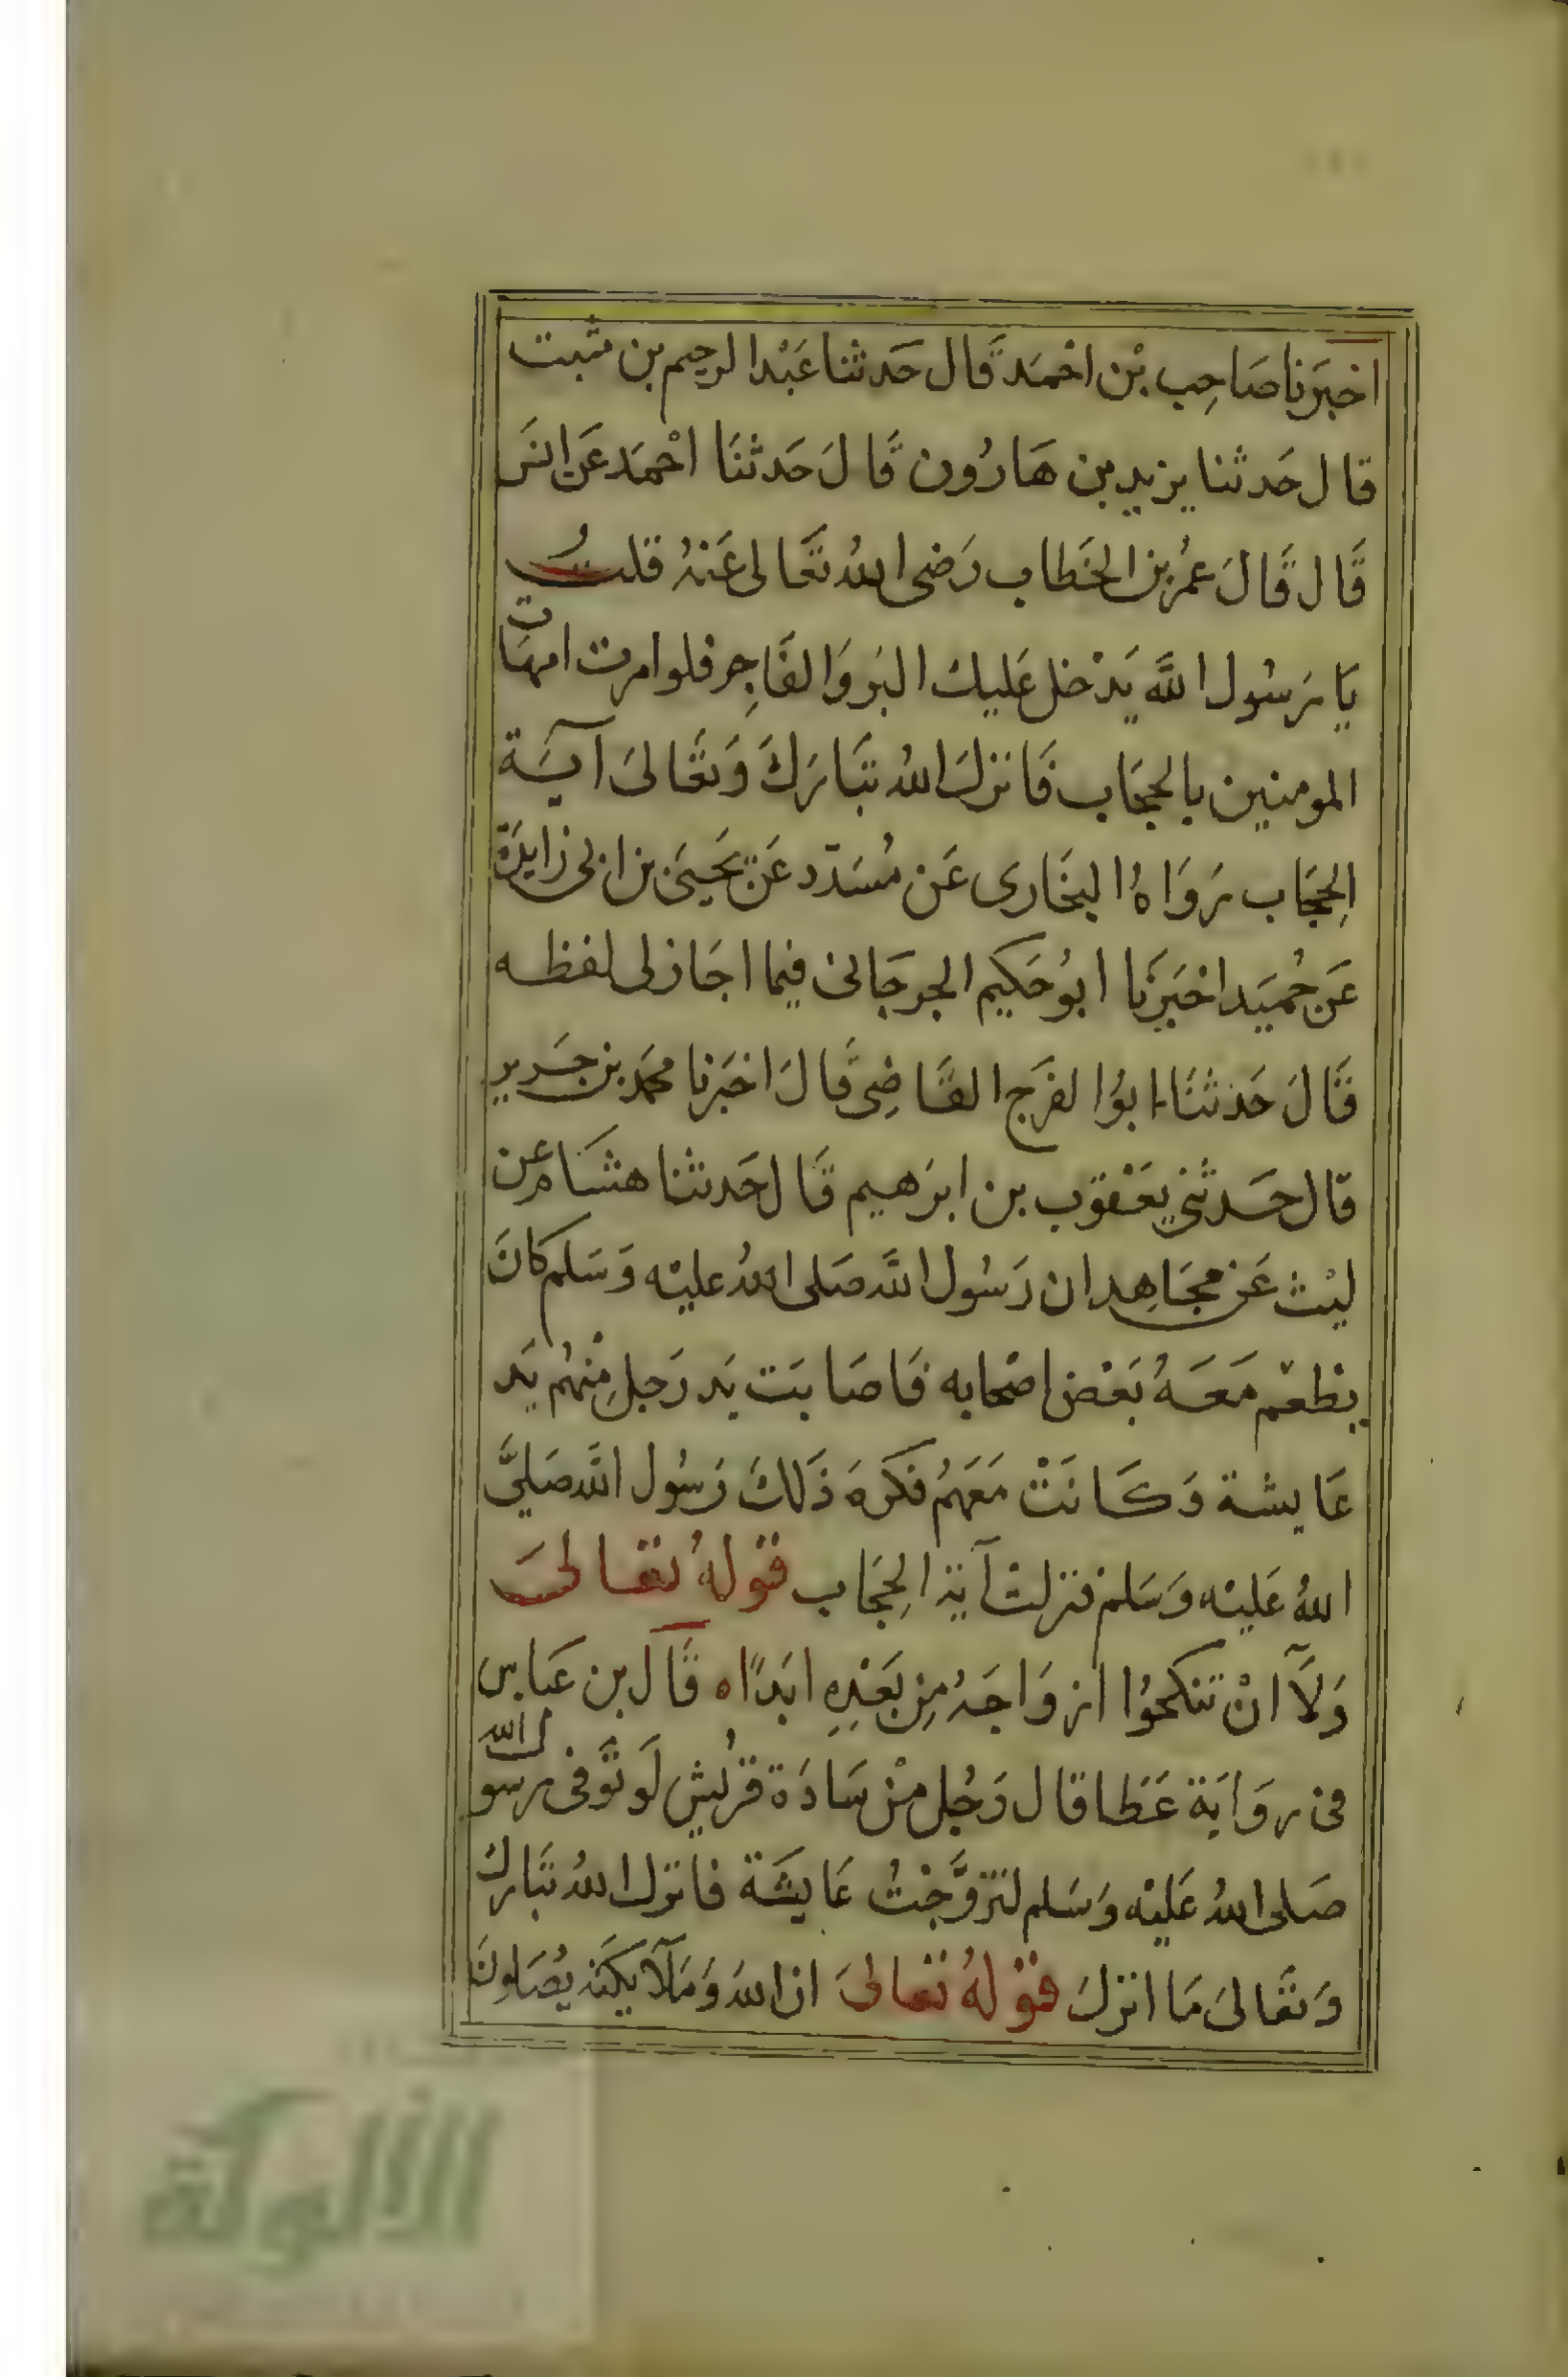 اخبَرَنا صَاحِب بْن احْمَد قَال حَدثنا عَبْد الرحِيم بن متبت
قال حَدثنا يزيد بن هَارُون قَالَ حَدثنَا احْمَد عَن انَس
قَال قَالَ عمُر بن الخَطاب رَضى اللهُ تعَالى عَنهُ قلتُ
يَا رَسُول اللَّه يَدْخل عَليك البَر وَالفَاجِر فلو امرت امهَات
المومنين بالحجَاب فَانزلَ اللهُ تبَارَكَ وَتعَالىَ آيَة
الحِجَاب رَوَاهُ البخَارى عَن مُسَدّد عَن يَحيىَ بن ابى زايدَة
عَن حُمَيد اخبَرَنَا ابوُحَكيم الجرجَانى فيما اجَاز لى لفظه
قَالَ حَدثنَا ابوُا الفرَج القَاضِى قَالَ اخبَرنا محمَد بن جَرير
قال حَدثنى يَعْقوَب بن ابرَهيم قَال حَدثنا هشَام عن
ليْث عَن مجَاهِد ان رَسُول اللَّه صَلى اللهُ عليْه وَسَلم كانَ
يطعْم مَعَهُ بَعْض اصْحابه فَاصَابَت يَد رَجلِ مِنْهُم يَد
عَايشة وَكَانَتْ مَعَهمُ فكَرهَ ذَلكَ رَسُول اللَّه صَليَّ
اللهُ عَليْه وَسَلم فنزلتْ آية الحِجَاب قوَلهُ تعَالىَ
وَلَآ انْ تنكحوُا ازوَاجَهُ مِن بَعْدِهِ ابَدًا ه قَآل بن عَباس
فى روَايَة عَطَا قال رَجُل مِنْ سَادَة قرُيش لَو توَّفى رسول الله
صَلى اللهُ عَليْه وَسَلم لتزوَّجْتُ عَايشَة فانزل اللهُ تبَارك
وَتعَالىَ مَا انزلَ قوْلهُ تعَالىَ ان اللهَ وَمَلَآيكَته يُصَلونَ
الألوكة